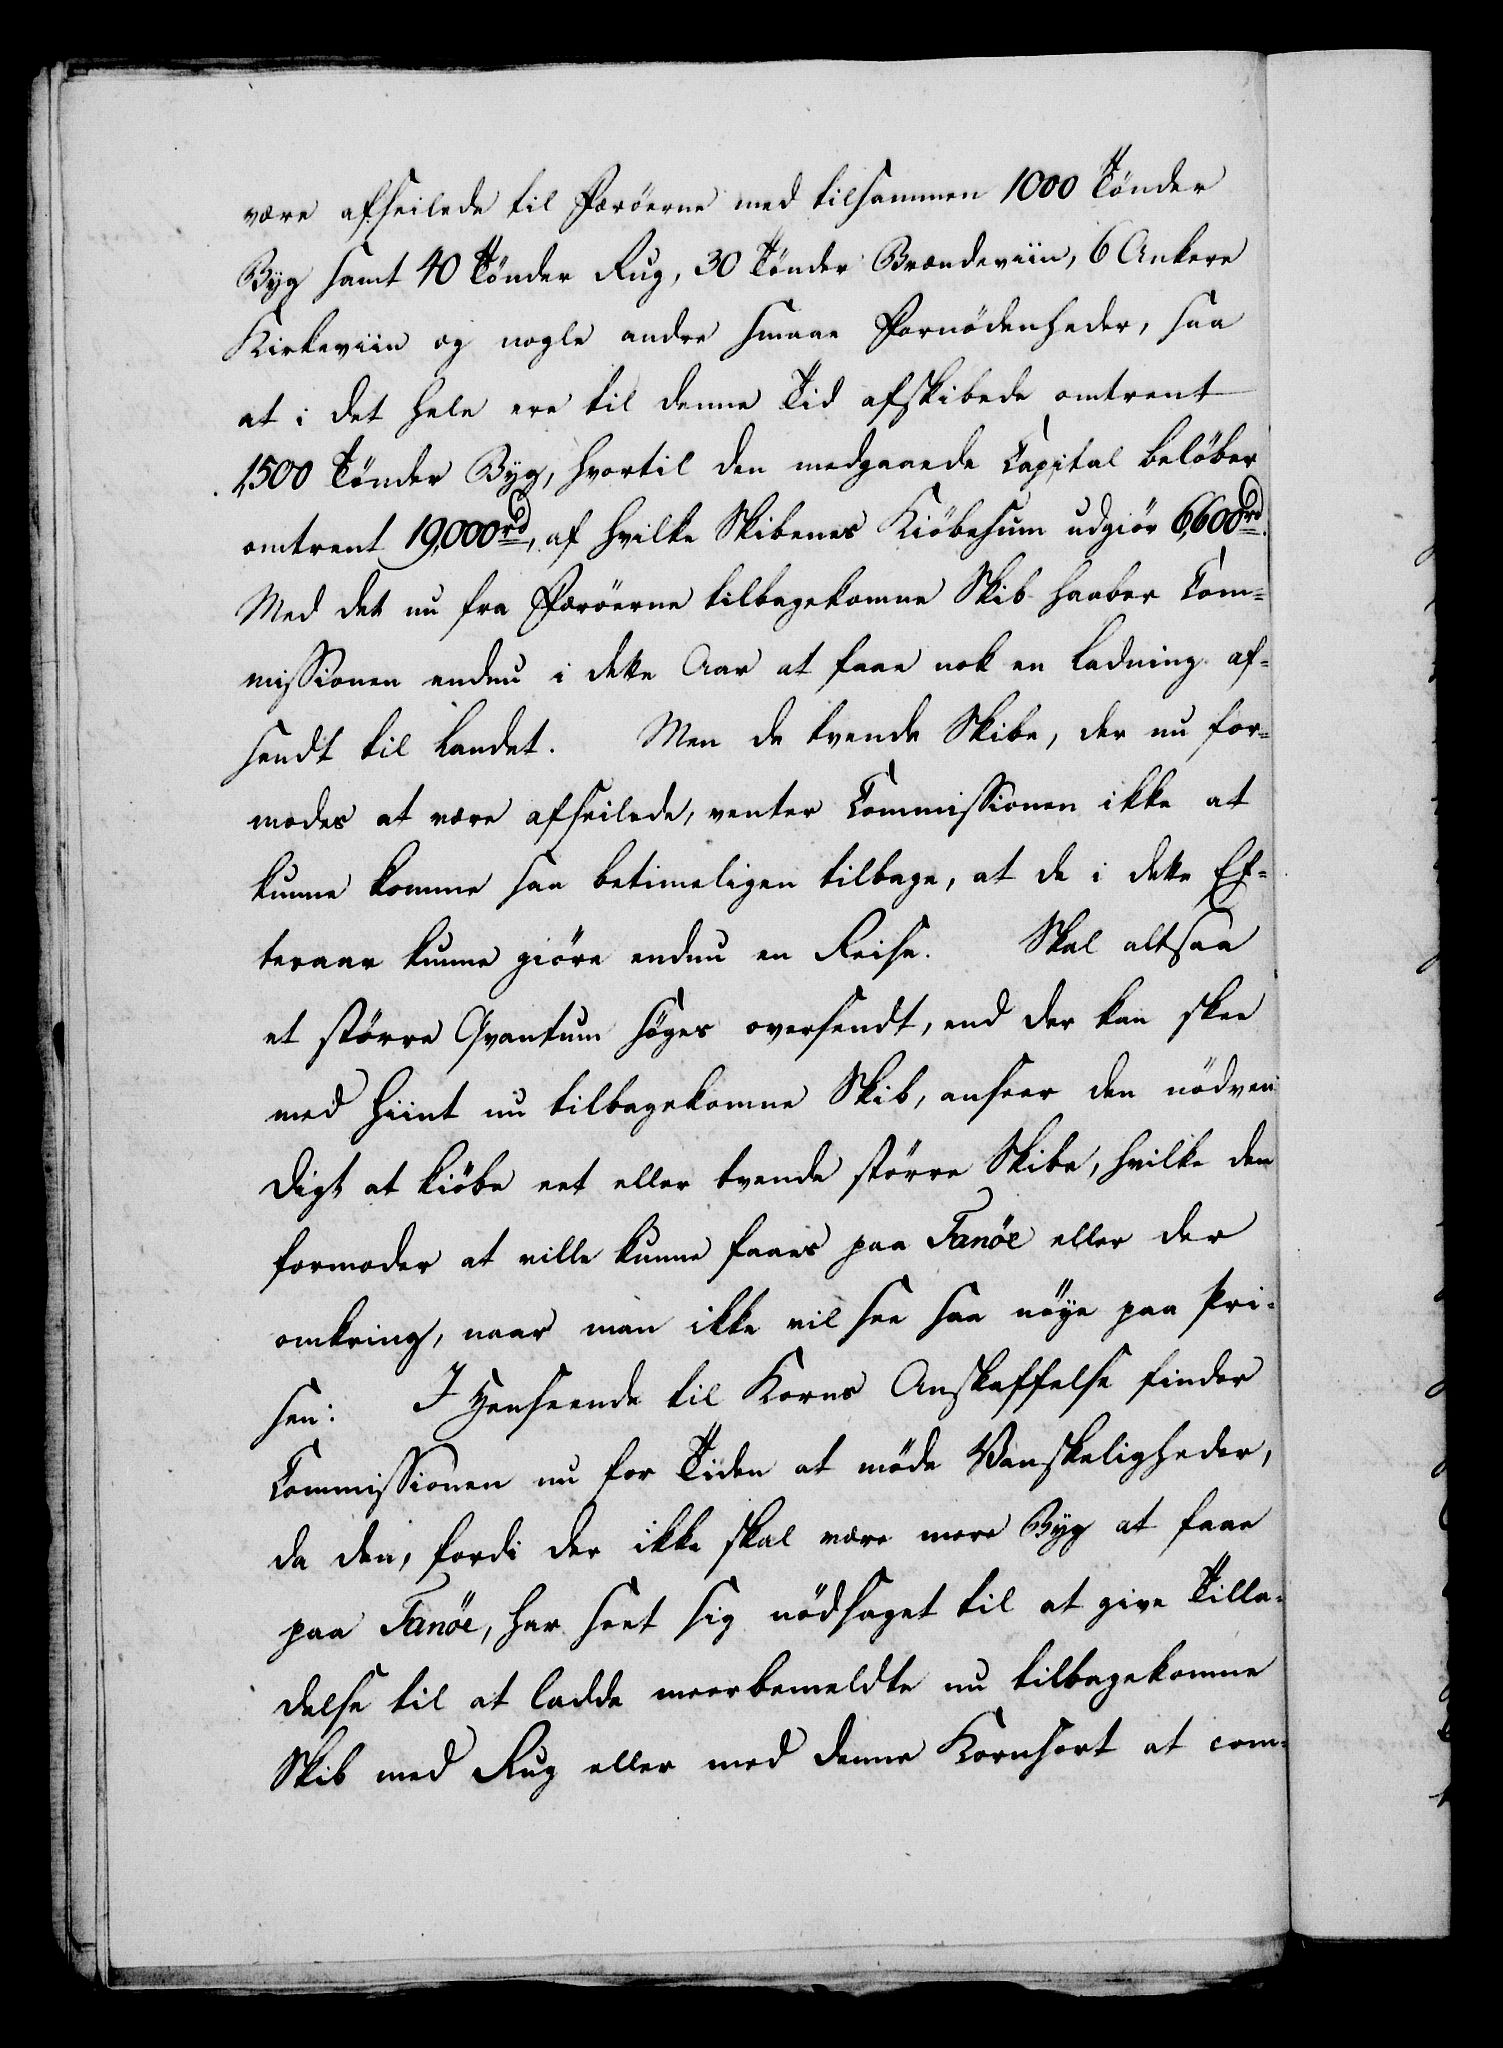 være afseilede til Færöerne med tilsammen 1000 Tönder
Byg samt 40 Tönder Rug, 30 Tönder Brændeviin, 6 Ankere
Kirkeviin og nogle andre smaae Fornödenheder, saa
at i det hele ere til denne Tid afskibede omtrent
1,500 Tönder Byg, hvortil den medgaaede Capital belöber
omtrent 19,000 rd, af hvilke Skibenes Kiöbesum udgiör 6,600 rd.
Med det nu fra Færöerne tilbagekomne Skib haaber Com=
missionen endnu i dette Aar at faae nok en Ladning af=
sendt til Landet. Men de tvende Skibe, der nu for=
modes at være afseilede, venter Commissionen ikke at
kunne komme saa betimeligen tilbage, at de i dette Ef=
teraar kunne giöre endnu en Reise. Skal altsaa
et större Qvantum söges oversendt, end der kan skee
med hiint nu tilbagekomne Skib, anseer den nödven
digt at kiöbe eet eller tvende större Skibe, hvilke den
formoder at ville kunne faaes paa Fanöe eller der
omkring, naar man ikke vil see saa nöye paa Pri=
sen: I Henseende til Korns Anskaffelse finder
Commissionen nu for Tiden at möde Vanskeligheder,
da den, fordi der ikke skal være mere Byg at faae
paa Fanöe, har seet sig nödsaget til at give Tilla=
delse til at ladde meerbemeldte nu tilbagekomne
Skib med Rug eller med denne Kornsort at com=